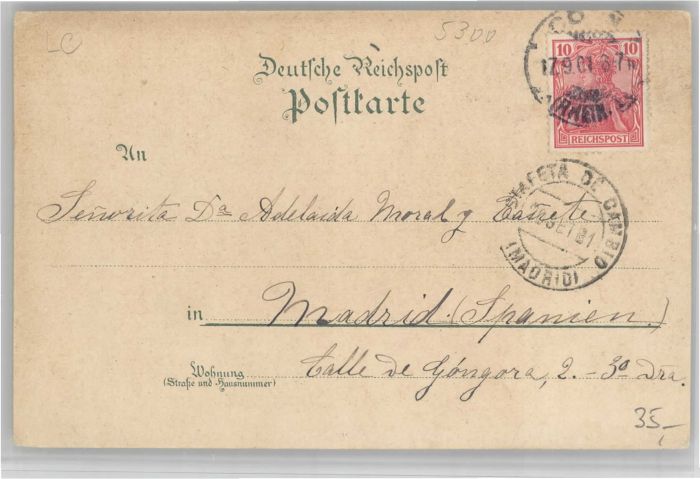 5300
Deutsche Reichspost
Postkarte
10 10
17.9.01 6-7N
RHEIN
REICHSPOST
An
ESTAFETA DE CAMBIO
SET 01
(MADRID)
Señorita Dª Adelaida Moral y
in Madrid (Spanien)
Wohnung
(Straße und Hausnummer)
Calle de Góngora, 2.-3º Dra.
35,-